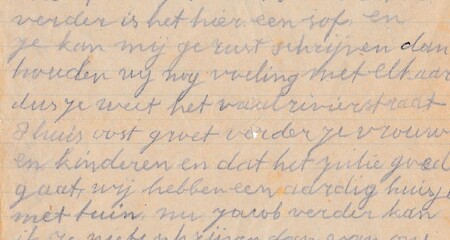 verder is het hier een sof. en
je kan mij gerust schrijven dan
houden wij nog voeling met elkaar
dus je weet het vaalrivierstraat
3 huis oost groet verder je vrouw
en kinderen en dat het julie goed
gaat, wij hebben een aardig huisje
met tuin. nu Jacob verder kan
ik je niets schrijven dan van ons